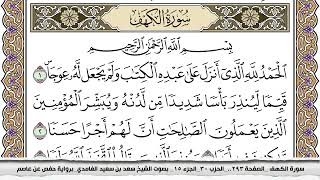 سُورَةُ الكَهۡفِ
بِسۡمِ ٱللَّهِ ٱلرَّحۡمَٰنِ ٱلرَّحِيمِ
ٱلۡحَمۡدُ لِلَّهِ ٱلَّذِيٓ أَنزَلَ عَلَىٰ عَبۡدِهِ ٱلۡكِتَٰبَ وَلَمۡ يَجۡعَل لَّهُۥ عِوَجَاۜ ١
قَيِّمٗا لِّيُنذِرَ بَأۡسٗا شَدِيدٗا مِّن لَّدُنۡهُ وَيُبَشِّرَ ٱلۡمُؤۡمِنِينَ
ٱلَّذِينَ يَعۡمَلُونَ ٱلصَّٰلِحَٰتِ أَنَّ لَهُمۡ أَجۡرًا حَسَنٗا ٢
سورة الكهف _ الصفحة ٢٩٣ _ الحزب ٣٠ _ الجزء ١٥ _ بصوت الشيخ سعد بن سعيد الغامدي _ برواية حفص عن عاصم